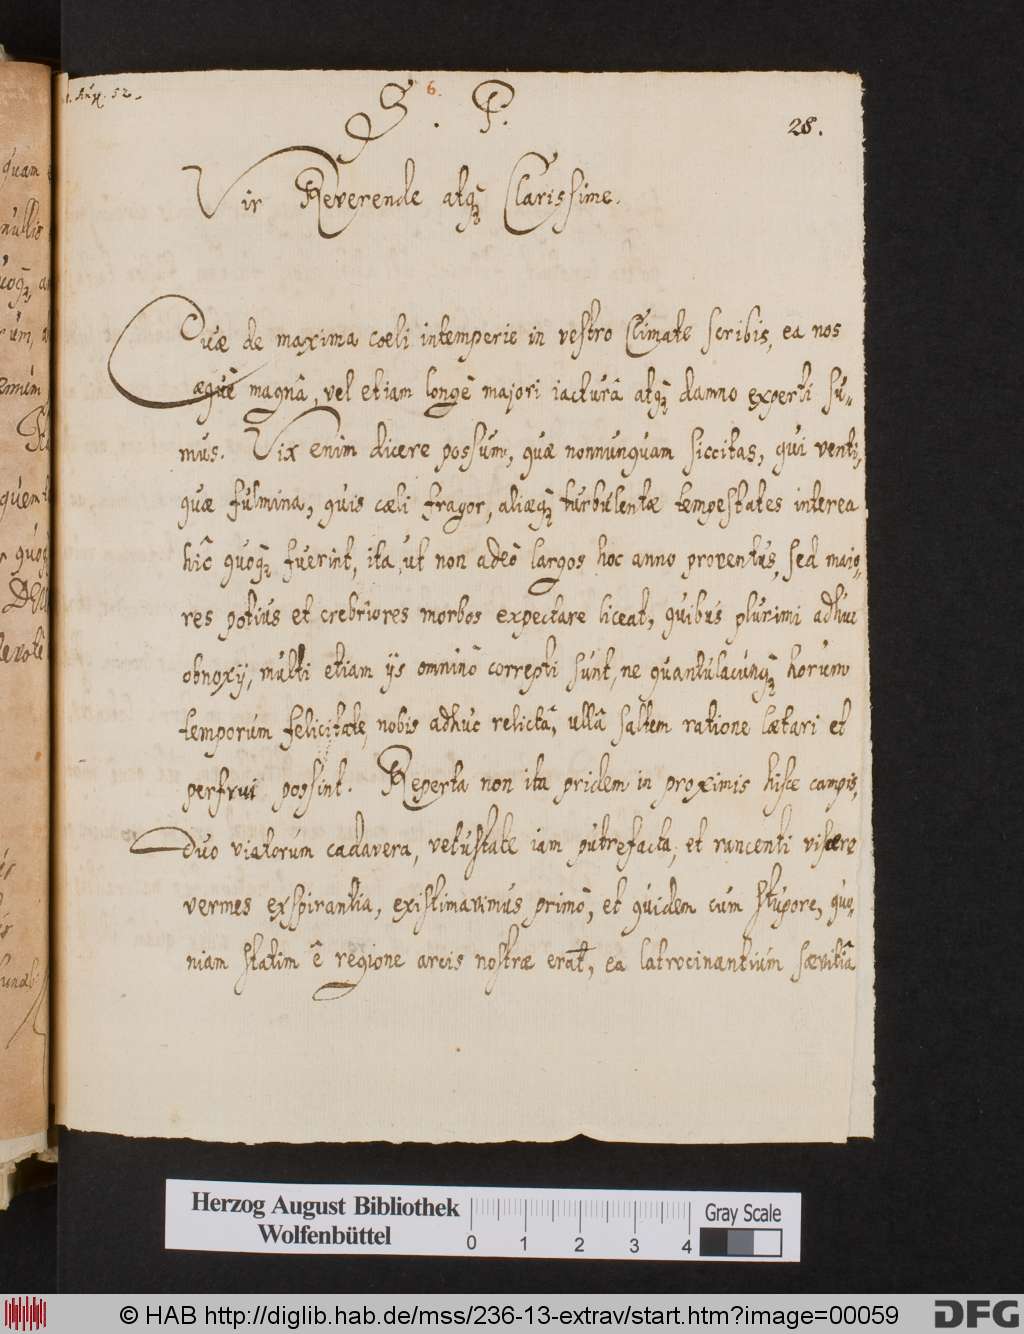 Aug. 52.
6.
S. P.
28.
Vir Reverende atq3 Clarissime.
Quæ de maxima cœli intemperie in vestro Climate scribis, ea nos
æquè magnâ, vel etiam longè majori iacturâ atq3 damno experti su„
mus. Vix enim dicere possum, quæ nonnunquam siccitas, qui venti,
quæ fulmina, quis cæli fragor, aliæq3 turbulentæ tempestates interea
hîc quoq3 fuerint, ita, ut non adeò largos hoc anno proventus, sed maio„
res potius et crebriores morbos expectare liceat, quibus plurimi adhuc
obnoxij, multi etiam ijs omninò correpti sunt, ne quantulacunq3 horum
temporum felicitate, nobis adhuc relictâ, ullâ saltem ratione lætari et
perfrui possint. Reperta non ita pridem in proximis hisce campis,
duo viatorum cadavera, vetustate iam putrefacta, et rancenti viscere
vermes exspirantia, existimavimus primò, et quidem cum stupore, quo„
niam statim è regione arcis nostræ erat, ea latrocinantium sævitiâ
quam
nullis
Herzog August Bibliothek
Wolfenbüttel
0 1 2 3 4
Gray Scale
© HAB http://diglib.hab.de/mss/236-13-extrav/start.htm?image=00059
DFG